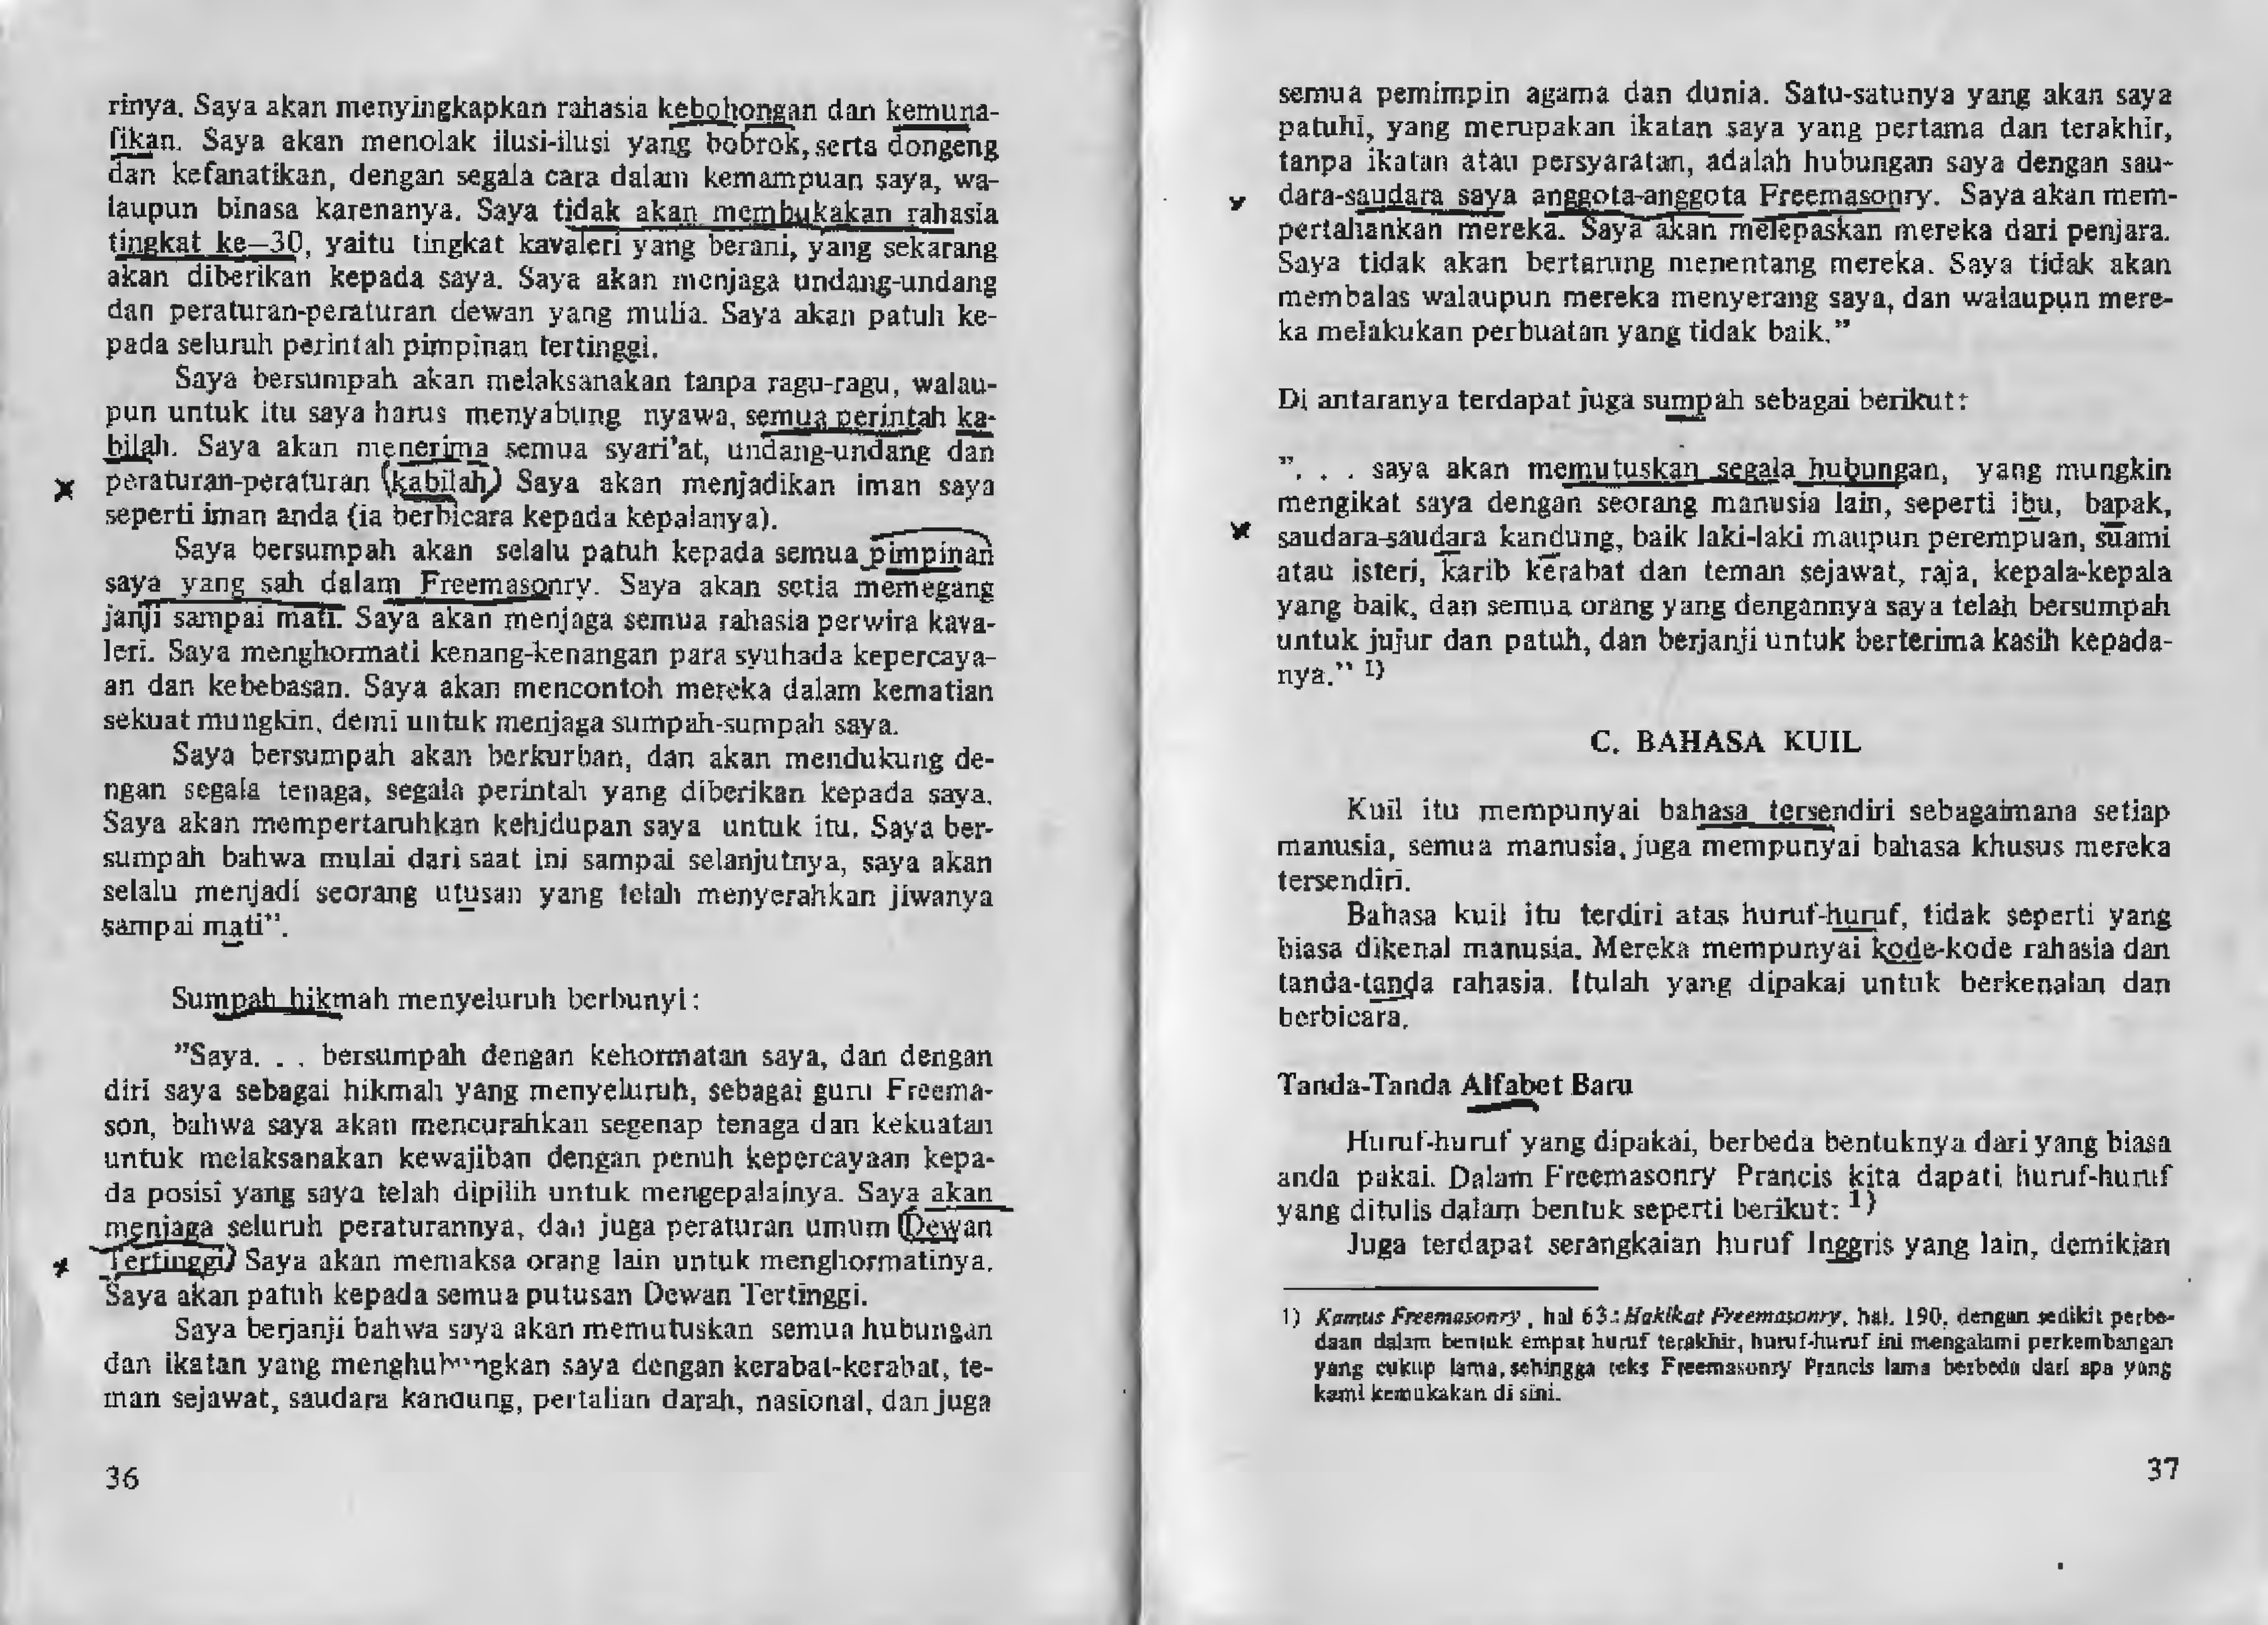 rinya. Saya akan menyingkapkan rahasia kebohongan dan kemuna-
fikan. Saya akan menolak ilusi-ilusi yang bobrok, serta dongeng
dan kefanatikan, dengan segala cara dalam kemampuan saya, wa-
laupun binasa karenanya. Saya tidak akan membukakan rahasia
tingkat ke—30, yaitu tingkat kavaleri yang berani, yang sekarang
akan diberikan kepada saya. Saya akan menjaga undang-undang
dan peraturan-peraturan dewan yang mulia. Saya akan patuh ke-
pada seluruh perintah pimpinan tertinggi.
Saya bersumpah akan melaksanakan tanpa ragu-ragu, walau-
pun untuk itu saya harus menyabung nyawa, semua perintah ka-
bilah. Saya akan menerima semua syari'at, undang-undang dan
peraturan-peraturan (kabilah) Saya akan menjadikan iman saya
seperti iman anda (ia berbicara kepada kepalanya).
Saya bersumpah akan selalu patuh kepada semua pimpinan
saya yang sah dalam Freemasonry. Saya akan setia memegang
janji sampai mati. Saya akan menjaga semua rahasia perwira kava-
leri. Saya menghormati kenang-kenangan para syuhada kepercaya-
an dan kebebasan. Saya akan mencontoh mereka dalam kematian
sekuat mungkin, demi untuk menjaga sumpah-sumpah saya.
Saya bersumpah akan berkurban, dan akan mendukung de-
ngan segala tenaga, segala perintah yang diberikan kepada saya.
Saya akan mempertaruhkan kehidupan saya untuk itu. Saya ber-
sumpah bahwa mulai dari saat ini sampai selanjutnya, saya akan
selalu menjadi seorang utusan yang telah menyerahkan jiwanya
sampai mati".
Sumpah hikmah menyeluruh berbunyi:
"Saya. . . bersumpah dengan kehormatan saya, dan dengan
diri saya sebagai hikmah yang menyeluruh, sebagai guru Freema-
son, bahwa saya akan mencurahkan segenap tenaga dan kekuatan
untuk melaksanakan kewajiban dengan penuh kepercayaan kepa-
da posisi yang saya telah dipilih untuk mengepalainya. Saya akan
menjaga seluruh peraturannya, dan juga peraturan umum (Dewan
Tertinggi) Saya akan memaksa orang lain untuk menghormatinya.
Saya akan patuh kepada semua putusan Dewan Tertinggi.
Saya berjanji bahwa saya akan memutuskan semua hubungan
dan ikatan yang menghubungkan saya dengan kerabat-kerabat, te-
man sejawat, saudara kandung, pertalian darah, nasional, dan juga
36
semua pemimpin agama dan dunia. Satu-satunya yang akan saya
patuhi, yang merupakan ikatan saya yang pertama dan terakhir,
tanpa ikatan atau persyaratan, adalah hubungan saya dengan sau-
dara-saudara saya anggota-anggota Freemasonry. Saya akan mem-
pertahankan mereka. Saya akan melepaskan mereka dari penjara.
Saya tidak akan bertarung menentang mereka. Saya tidak akan
membalas walaupun mereka menyerang saya, dan walaupun mere-
ka melakukan perbuatan yang tidak baik."
Di antaranya terdapat juga sumpah sebagai berikut:
". . . saya akan memutuskan segala hubungan, yang mungkin
mengikat saya dengan seorang manusia lain, seperti ibu, bapak,
saudara-saudara kandung, baik laki-laki maupun perempuan, suami
atau isteri, karib kerabat dan teman sejawat, raja, kepala-kepala
yang baik, dan semua orang yang dengannya saya telah bersumpah
untuk jujur dan patuh, dan berjanji untuk berterima kasih kepada-
nya." 1)
C. BAHASA KUIL
Kuil itu mempunyai bahasa tersendiri sebagaimana setiap
manusia, semua manusia, juga mempunyai bahasa khusus mereka
tersendiri.
Bahasa kuil itu terdiri atas huruf-huruf, tidak seperti yang
biasa dikenal manusia. Mereka mempunyai kode-kode rahasia dan
tanda-tanda rahasia. Itulah yang dipakai untuk berkenalan dan
berbicara.
Tanda-Tanda Alfabet Baru
Huruf-huruf yang dipakai, berbeda bentuknya dari yang biasa
anda pakai. Dalam Freemasonry Prancis kita dapati huruf-huruf
yang ditulis dalam bentuk seperti berikut: 1)
Juga terdapat serangkaian huruf Inggris yang lain, demikian
1) Kamus Freemasonry, hal 63.: Hakikat Freemasonry, hal. 190, dengan sedikit perbe-
daan dalam bentuk empat huruf terakhir, huruf-huruf ini mengalami perkembangan
yang cukup lama, sehingga teks Freemasonry Prancis lama berbeda dari apa yang
kami kemukakan di sini.
37